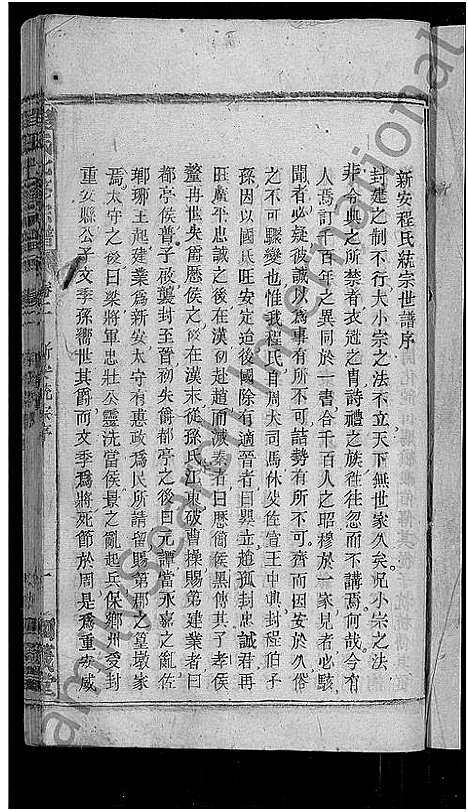 新安程氏統宗世譜序
封建之制不行大小宗之法不立天下無世家久矣況小宗之法
非令典之所禁者衣冠之胄詩禮之族徃徃忽而不講焉何哉今有
人焉訂千百年之異同於一書合千百人之昭穆於一家見者必駭
聞者必疑彼誠以為事有所不可詰勢有所不可齊而因安於久俗
之不可驟變也惟我程氏自周大司馬休父佐宣王中典封程伯子
孫因以國氏旺安定迨後國除有適晉者曰嬰立趙孤封忠誠君再
旺廣平忠誠之後在漢初趙而滅秦者曰歷簡侯黑傳其子孝侯
釐再世失爵歷侯之後在漢末從孫氏江東破曹操賜第建業者曰
都亭侯普子咨襲封至晉初失爵都亭之後曰元譚當永嘉之亂佐
瑯琊王起建業為新安太守有惠政為民所請留賜第郡之篁墩家
焉太守之後曰梁將軍忠壯公靈洗當侯景之亂起兵保鄉州爰封
重安縣公子文季孫嚮世其爵而文季為將死節於周是為重安威
卷一